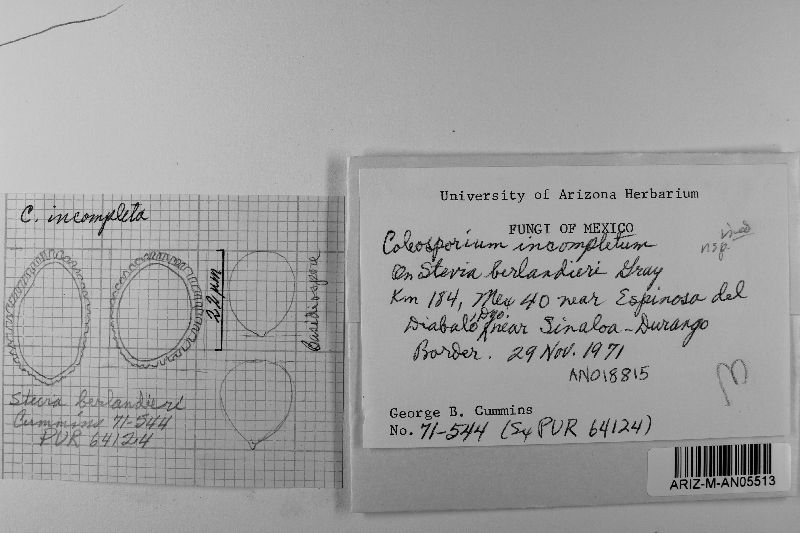 C. incompleta
22 µm
Basidiospore
Stevia berlandieri
Cummins 71-544
PUR 64124
University of Arizona Herbarium
FUNGI OF MEXICO
Coleosporium incompletum
n sp. ined
On Stevia berlandieri Gray
Km 184, Mex 40 near Espinosa del
Diabalo, Dgo. near Sinaloa-Durango
Border. 29 Nov. 1971
AN018815
George B. Cummins
No. 71-544 (Ex PUR 64124)
ARIZ-M-AN05513